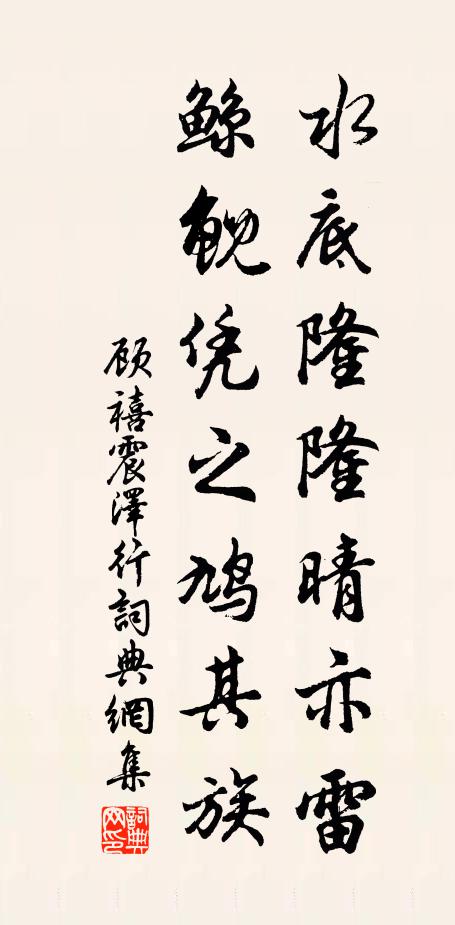 水底隆隆晴亦雷
鲸鲵凭之鸠其族
顾禧震澤行詞典網集
詞典網印